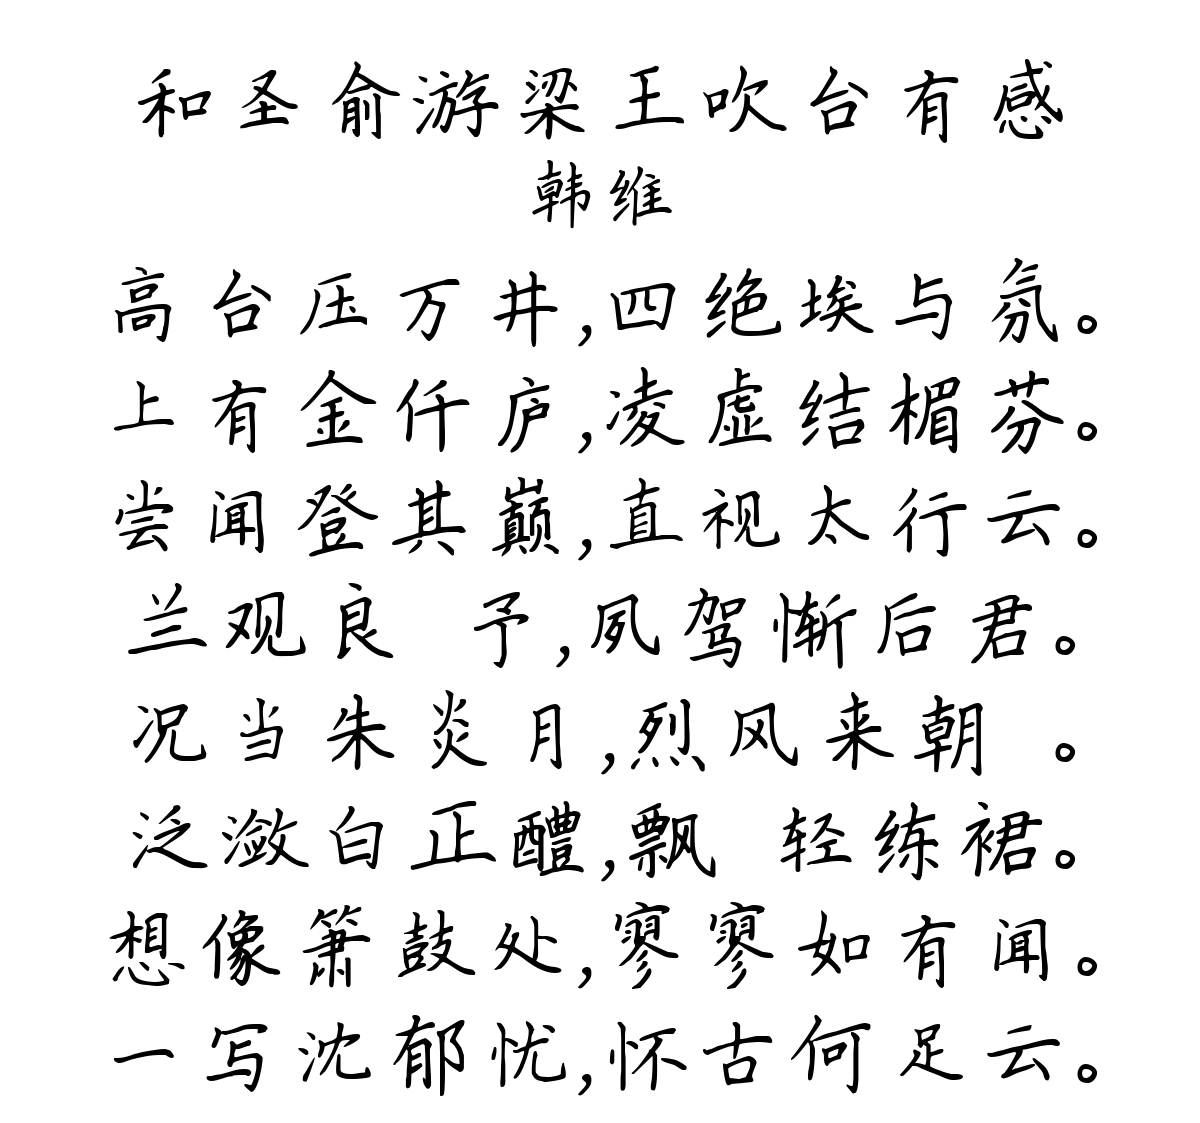 和圣俞游梁王吹台有感
韩维
高台压万井,四绝埃与氛。
上有金仟庐,凌虚结楣芬。
尝闻登其巅,直视太行云。
兰观良 予,夙驾惭后君。
况当朱炎月,烈风来朝 。
泛潋白正醴,飘 轻练裙。
想像箫鼓处,寥寥如有闻。
一写沈郁忧,怀古何足云。